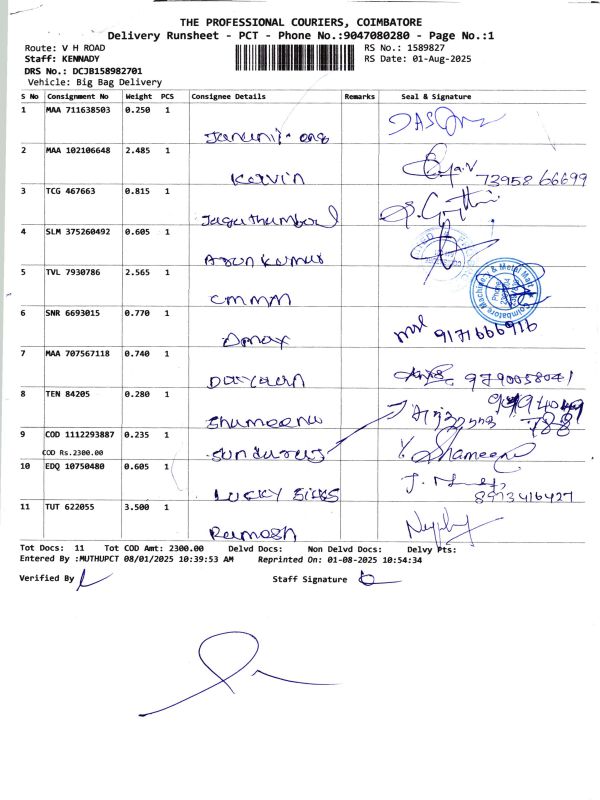 THE PROFESSIONAL COURIERS, COIMBATORE
Delivery Runsheet - PCT - Phone No.:9047080280 - Page No.:1
Route: V H ROAD RS No.: 1589827
Staff: KENNADY RS Date: 01-Aug-2025
DRS No.: DCJB158982701
Vehicle: Big Bag Delivery
S No Consignment No Weight PCS Consignee Details Remarks Seal & Signature
1 MAA 711638503 0.250 1
2 MAA 102106648 2.485 1 Kervin 73958 66699
3 TCG 467663 0.815 1
4 SLM 375260492 0.605 1 Arun Kumar
5 TVL 7930786 2.565 1 CMMM
Coimbatore Machinery & Metal Mart
6 SNR 6693015 0.770 1 9171666916
7 MAA 707567118 0.740 1 9790058041
8 TEN 84205 0.280 1 Shameena
9 COD 1112293887 0.235 1 Y. Shameena
COD Rs.2300.00
10 EDQ 10750480 0.605 1 LUCKY 8973416427
11 TUT 622055 3.500 1 Ramesh
Tot Docs: 11 Tot COD Amt: 2300.00 Delvd Docs: Non Delvd Docs: Delvy Pts:
Entered By :MUTHUPCT 08/01/2025 10:39:53 AM Reprinted On: 01-08-2025 10:54:34
Verified By Staff Signature